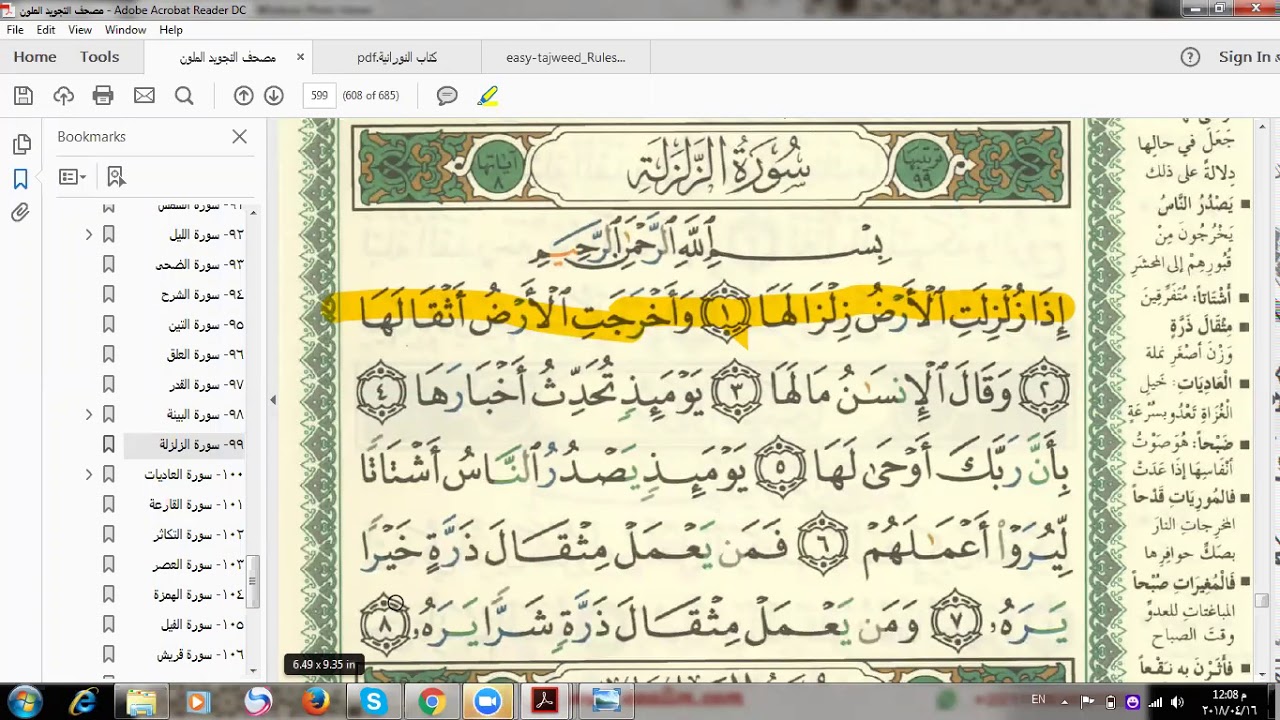 مصحف التجويد الملون - Adobe Acrobat Reader DC
File Edit View Window Help
Home Tools مصحف التجويد الملون × كتاب النورانية.pdf easy-tajweed_Rules... Sign In
599 (608 of 685)
Bookmarks
٩١- سورة الشمس
٩٢- سورة الليل
٩٣- سورة الضحى
٩٤- سورة الشرح
٩٥- سورة التين
٩٦- سورة العلق
٩٧- سورة القدر
٩٨- سورة البينة
٩٩- سورة الزلزلة
١٠٠- سورة العاديات
١٠١- سورة القارعة
١٠٢- سورة التكاثر
١٠٣- سورة العصر
١٠٤- سورة الهمزة
١٠٥- سورة الفيل
١٠٦- سورة قريش
ترتيبها ٩٩ سُورَةُ الزَّلْزَلَةِ آياتها ٨
بِسْمِ اللَّهِ الرَّحْمَٰنِ الرَّحِيمِ
إِذَا زُلْزِلَتِ الْأَرْضُ زِلْزَالَهَا ١ وَأَخْرَجَتِ الْأَرْضُ أَثْقَالَهَا
٢ وَقَالَ الْإِنسَٰنُ مَا لَهَا ٣ يَوْمَئِذٍ تُحَدِّثُ أَخْبَارَهَا ٤
بِأَنَّ رَبَّكَ أَوْحَىٰ لَهَا ٥ يَوْمَئِذٍ يَصْدُرُ النَّاسُ أَشْتَاتًا
لِّيُرَوْا أَعْمَٰلَهُمْ ٦ فَمَن يَعْمَلْ مِثْقَالَ ذَرَّةٍ خَيْرًا
يَرَهُۥ ٧ وَمَن يَعْمَلْ مِثْقَالَ ذَرَّةٍ شَرًّا يَرَهُۥ ٨
جَعَلَ في حالِها
دِلالةً على ذلك
يَصْدُرُ النَّاسُ
يَخْرُجُونَ مِنْ
قُبُورِهِمْ إلى المحشَرِ
أَشْتَاتاً: مُتَفَرِّقِينَ
مِثْقَالَ ذَرَّةٍ
وَزْنَ أصْغَرِ نملة
الْعَادِيَات: خَيلِ
الْغُزَاةِ تَعْدُو بسُرْعَةٍ
ضَبْحاً: هُوَ صَوْتُ
أَنْفَاسِهَا إذَا عَدَتْ
فالمُورِيَاتِ قَدْحاً
المخرِجاتِ النارَ
بصَكِّ حوافِرِها
فَالْمُغِيرَاتِ صُبْحاً
المباغتات للعدوِّ
وقتَ الصباح
فَأَثَرْنَ به نَقْعاً
6.49 x 9.35 in
EN
12:08 م
٢٠١٨/٠٤/١٦